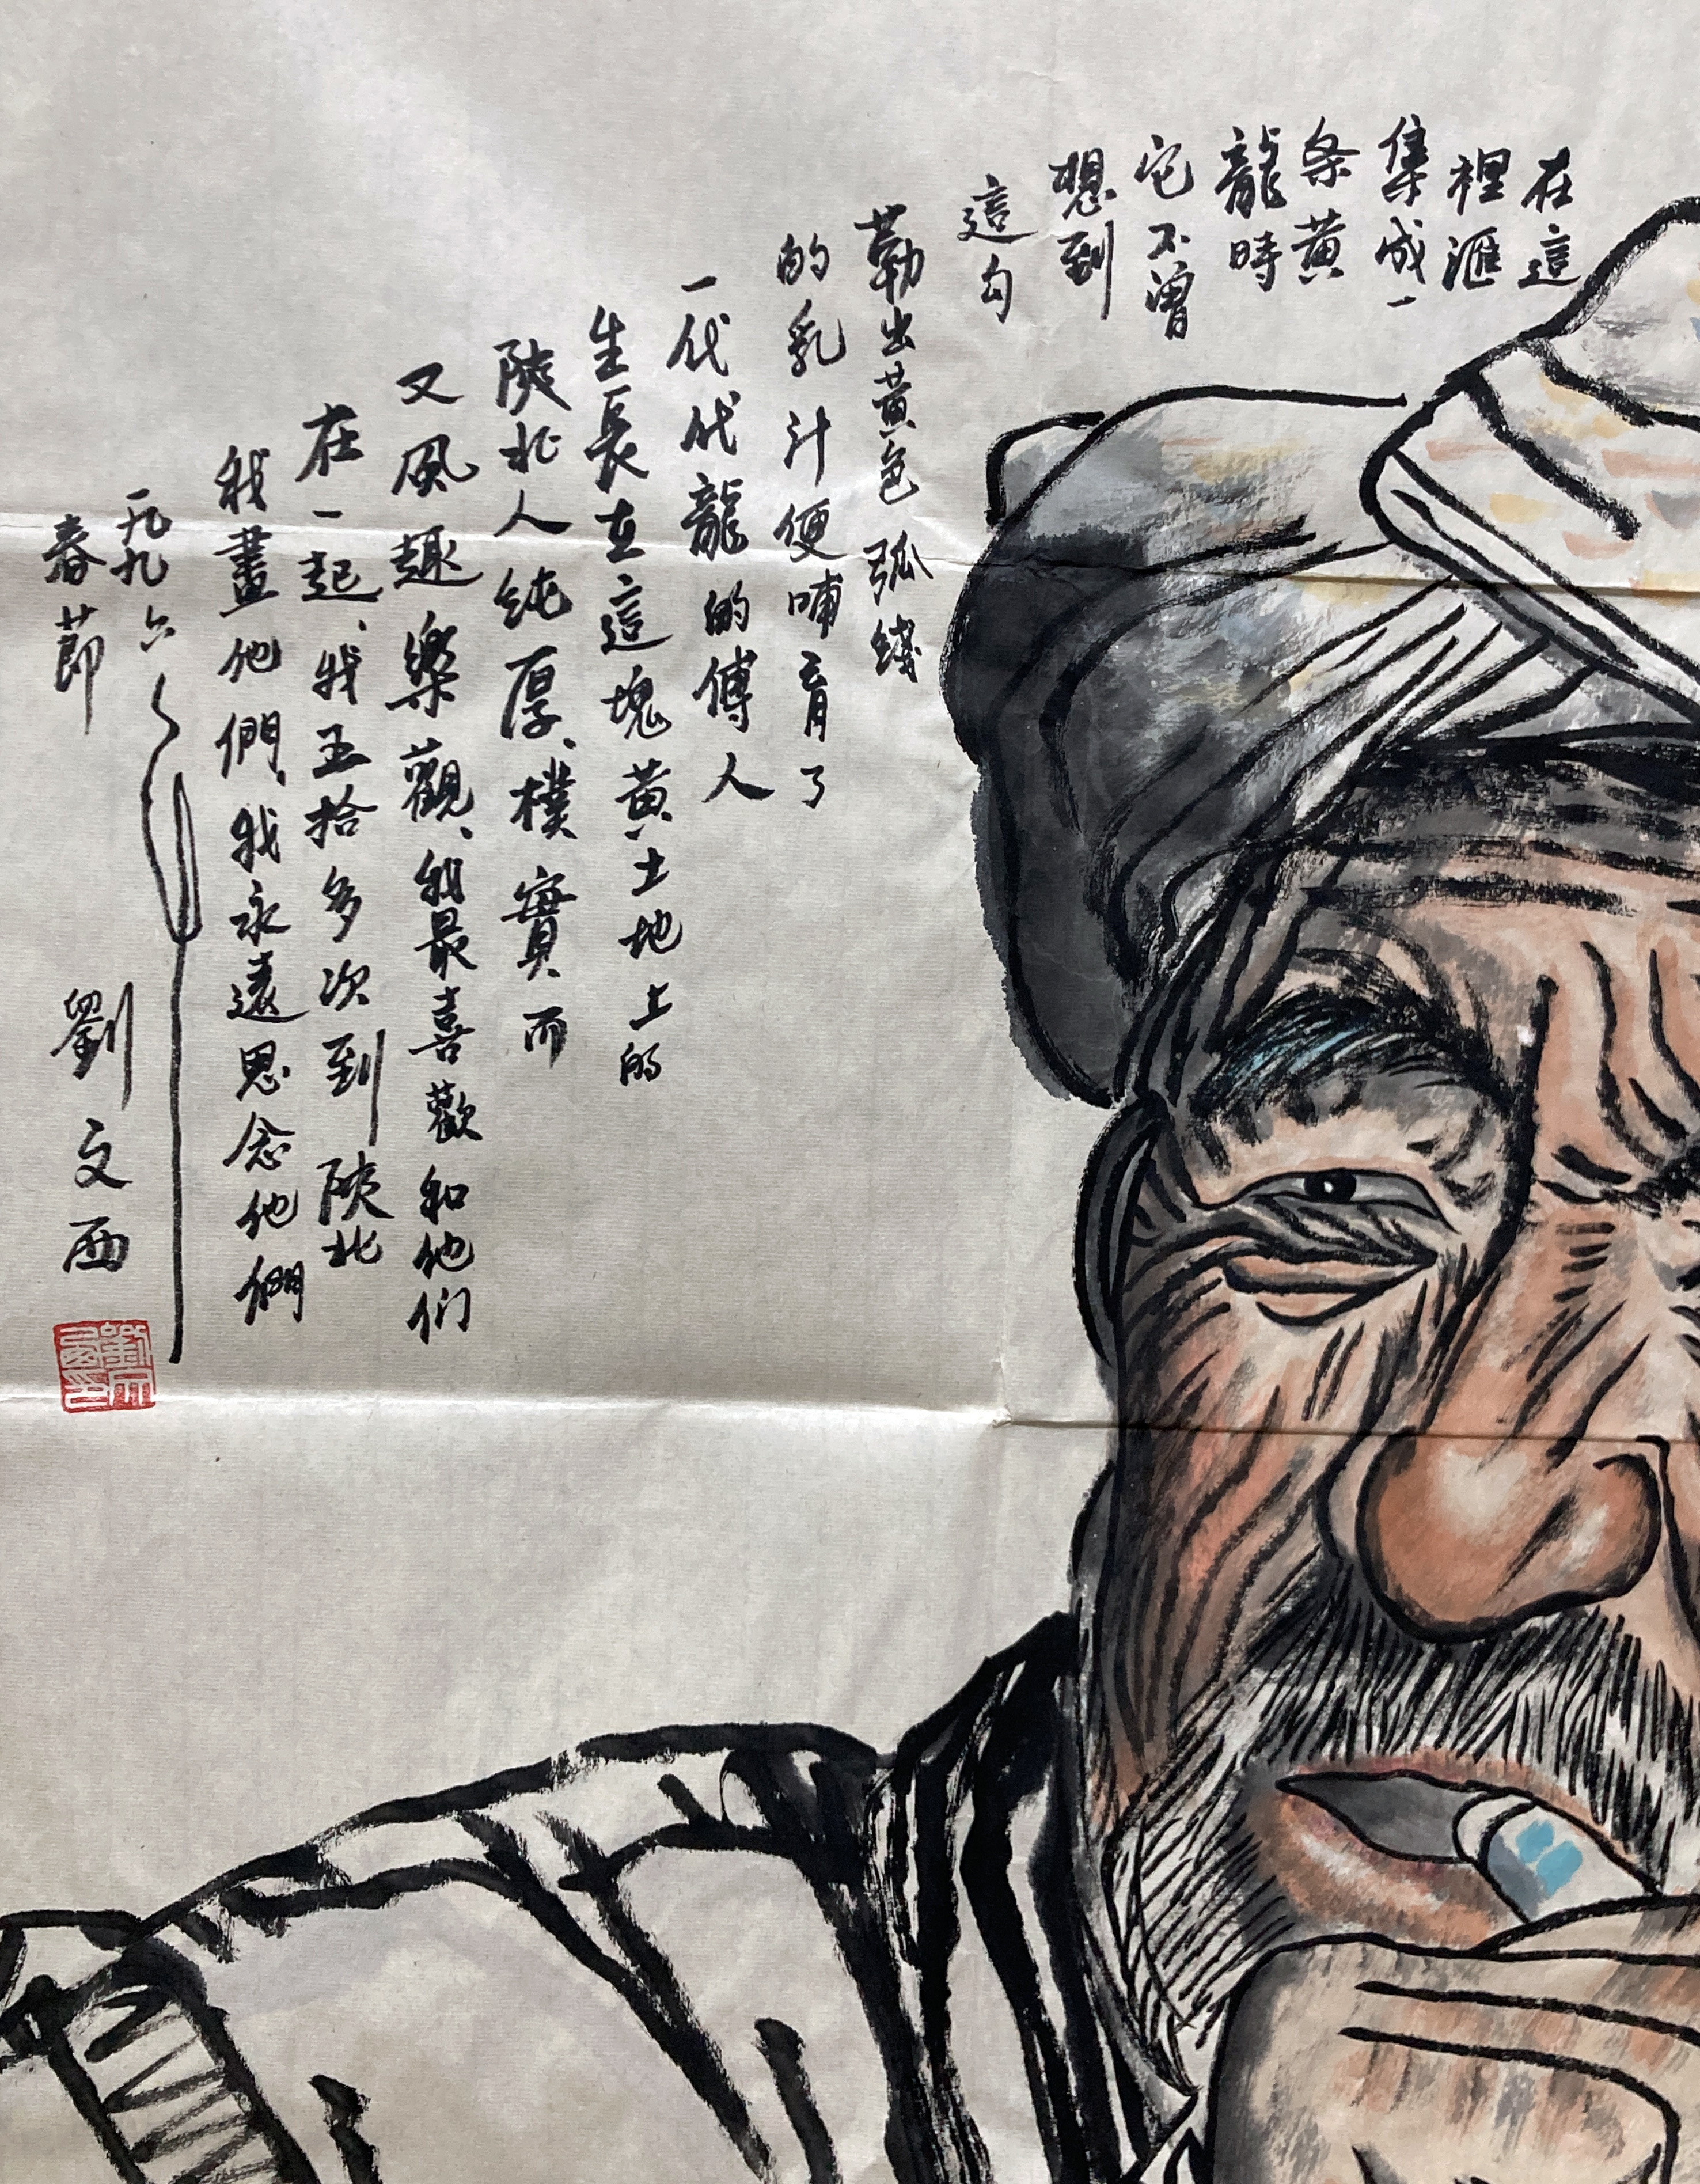 在這
裡滙
集成一
条黄
龍時
它不曾
想到
這勾
勒出黄色弧綫
的乳汁便哺育了
一代代龍的傳人
生長在這塊黄土地上的
陝北人纯厚、樸實而
又風趣樂觀、我最喜歡和他们
在一起、我五拾多次到陝北
我畫他們、我永遠思念他們
一九九六
春节
劉文西
劉文西印